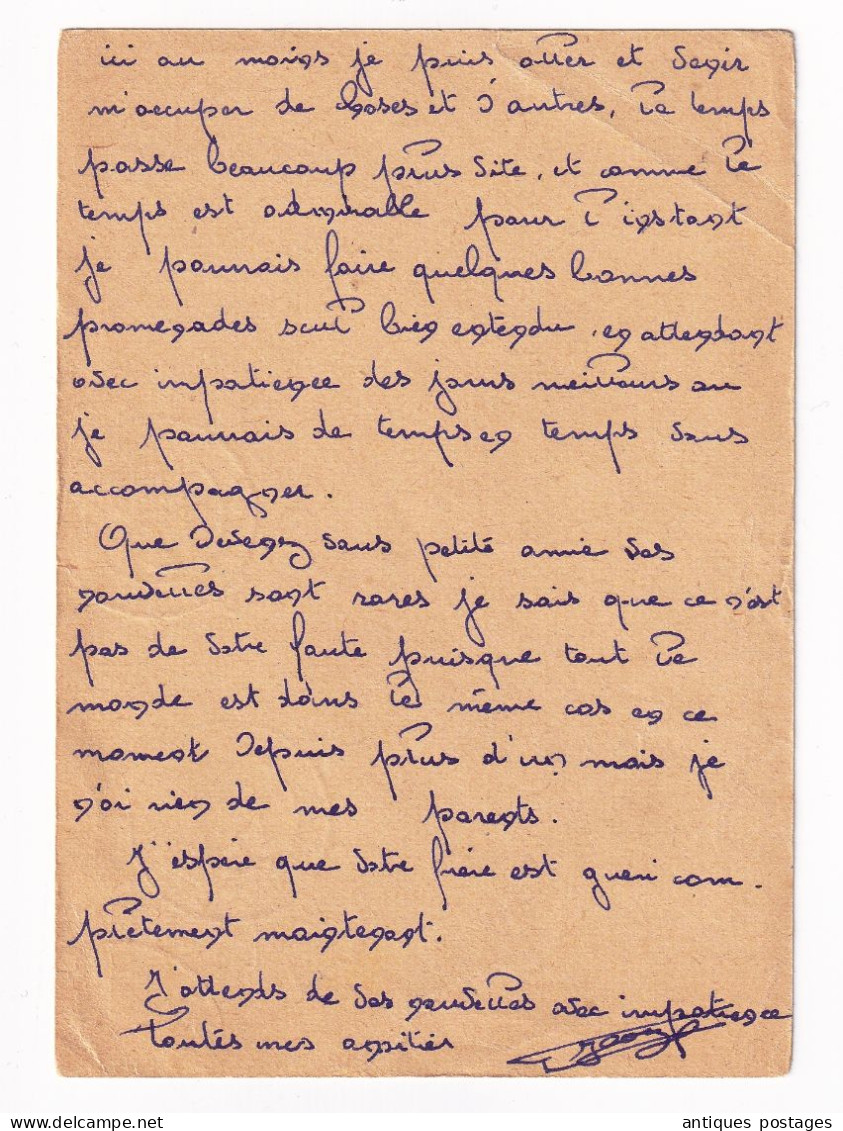 ici au moins je puis aller et venir
m'occuper de choses et d'autres, le temps
passe beaucoup plus vite, et comme le
temps est admirable pour l'instant
je pourrais faire quelques bonnes
promenades seul bien entendu, en attendant
avec impatience des jours meilleurs ou
je pourrais de temps en temps vous
accompagner.
Que devenez vous petite amie vos
nouvelles sont rares je sais que ce n'est
pas de votre faute puisque tout le
monde est dans le même cas en ce
moment depuis plus d'un mois je
n'ai rien de mes parents.
J'espère que votre frère est guéri com-
plètement maintenant.
J'attends de vos nouvelles avec impatience
toutes mes amitiés
antiques postages